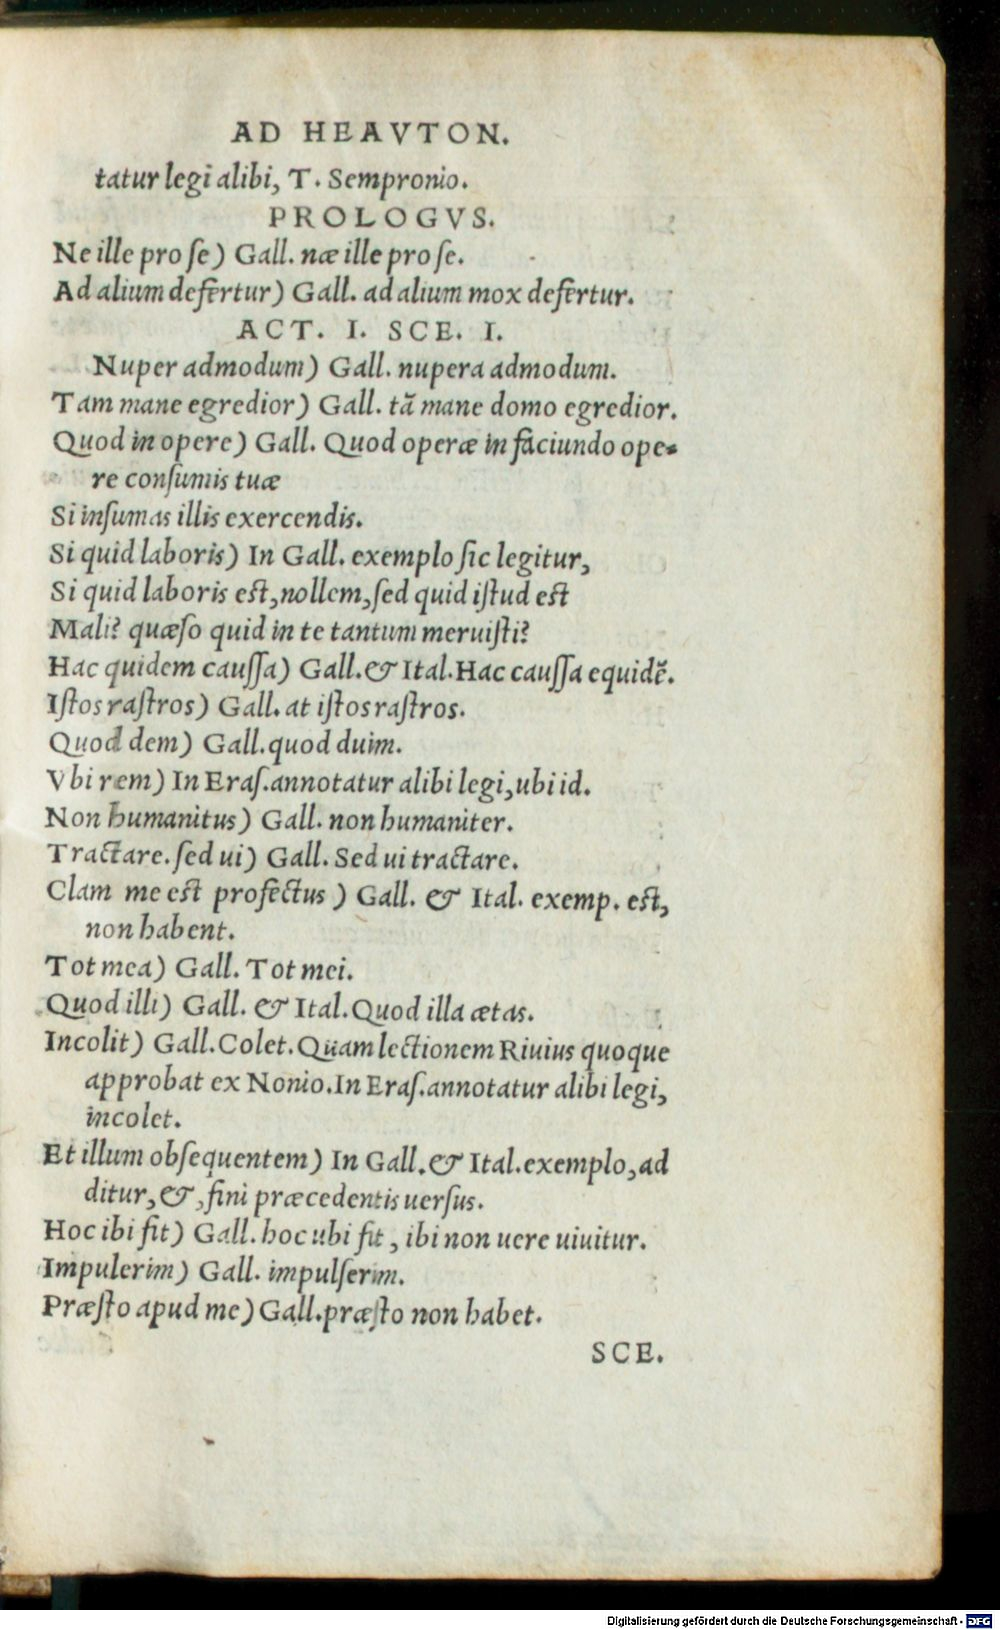 AD HEAVTON.
tatur legi alibi, T. Sempronio.
PROLOGVS.
Ne ille pro se) Gall. næ ille pro se.
Ad alium defertur) Gall. ad alium mox defertur.
ACT. I. SCE. I.
Nuper admodum) Gall. nupera admodum.
Tam mane egredior) Gall. tã mane domo egredior.
Quod in opere) Gall. Quod operæ in faciundo ope-
re consumis tuæ
Si insumas illis exercendis.
Si quid laboris) In Gall. exemplo sic legitur,
Si quid laboris est, nollem, sed quid istud est
Mali? quæso quid in te tantum meruisti?
Hac quidem caussa) Gall. & Ital. Hac caussa equidẽ.
Istos rastros) Gall. at istos rastros.
Quod dem) Gall. quod duim.
Vbi rem) In Eras. annotatur alibi legi, ubi id.
Non humanitus) Gall. non humaniter.
Tractare. sed ui) Gall. Sed ui tractare.
Clam me est profectus) Gall. & Ital. exemp. est,
non habent.
Tot mea) Gall. Tot mei.
Quod illi) Gall. & Ital. Quod illa ætas.
Incolit) Gall. Colet. Quam lectionem Riuius quoque
approbat ex Nonio. In Eras. annotatur alibi legi,
incolet.
Et illum obsequentem) In Gall. & Ital. exemplo, ad
ditur, &, fini præcedentis uersus.
Hoc ibi fit) Gall. hoc ubi fit, ibi non uere uiuitur.
Impulerim) Gall. impulserim.
Præsto apud me) Gall. præsto non habet.
SCE.
Digitalisierung gefördert durch die Deutsche Forschungsgemeinschaft - DFG